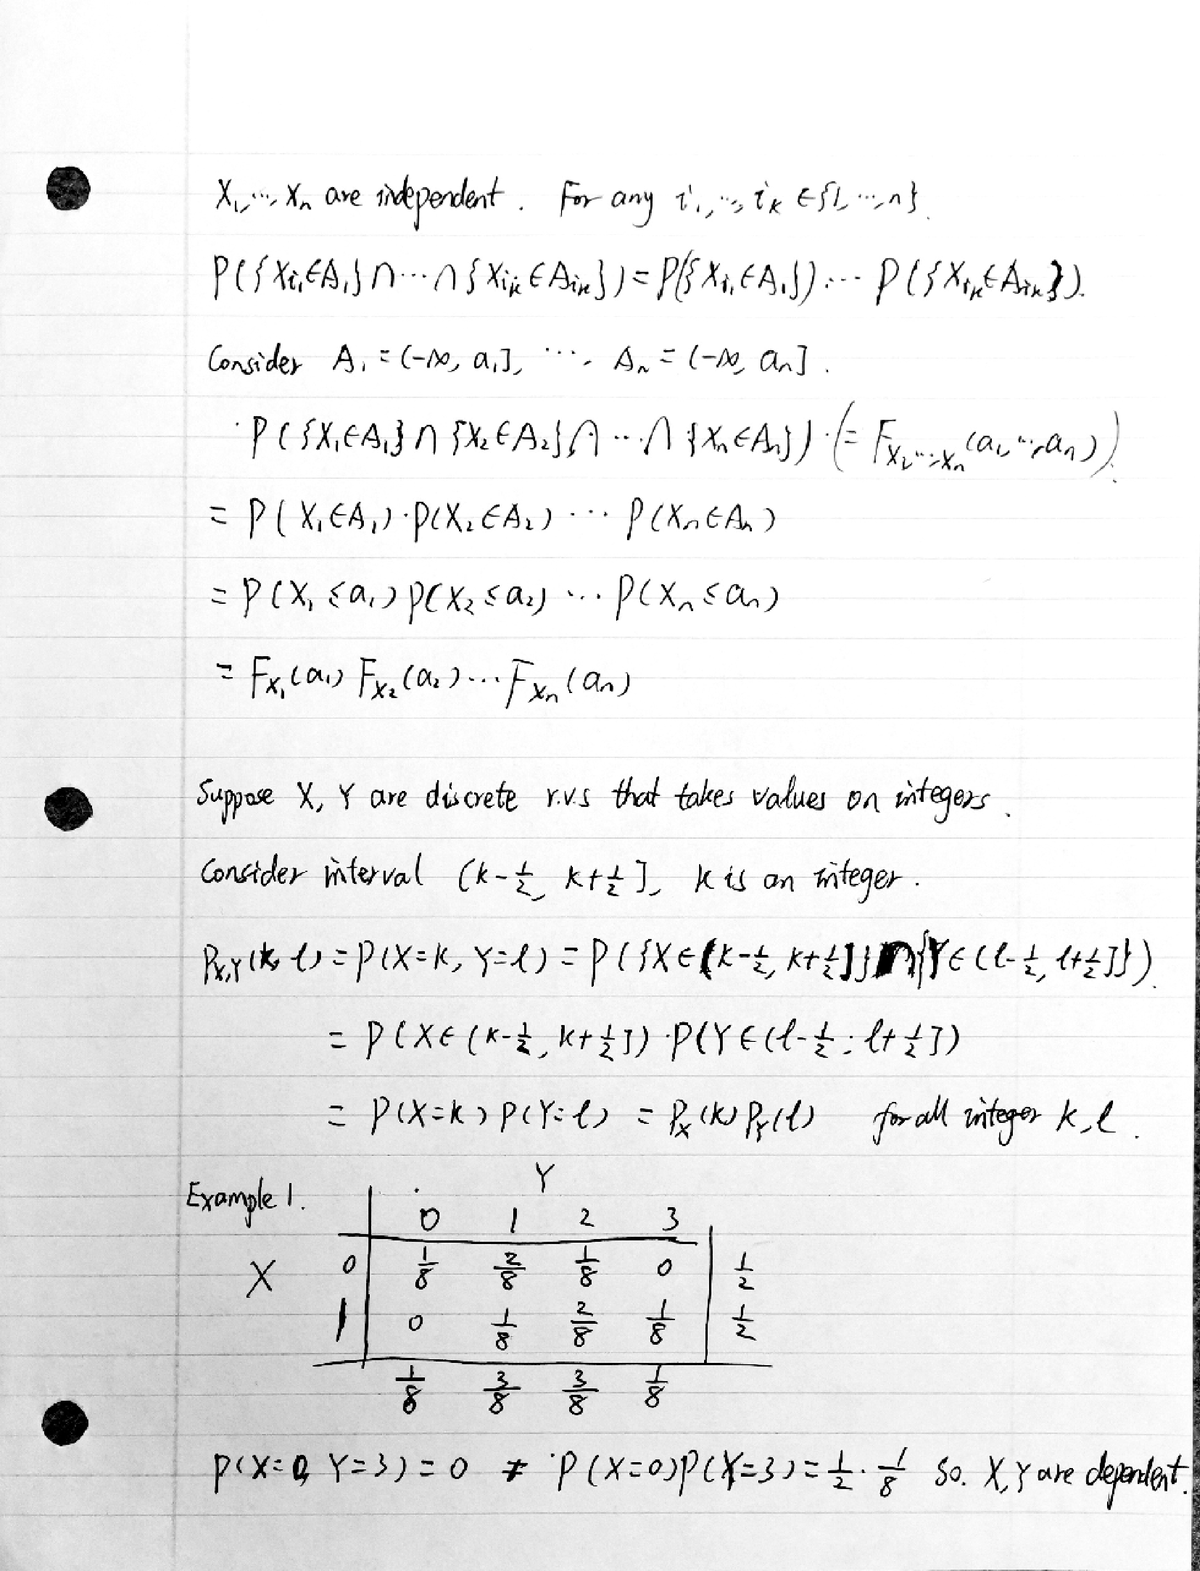 X₁, ..., Xₙ are independent. For any i₁, ..., iₖ ∈ {1, ..., n}.
P({Xi₁ ∈ A₁} ∩ ... ∩ {Xiₖ ∈ Aiₖ}) = P({Xi₁ ∈ A₁}) ... P({Xiₖ ∈ Aiₖ}).
Consider A₁ = (-∞, a₁], ..., Aₙ = (-∞, aₙ].
P({X₁ ∈ A₁} ∩ {X₂ ∈ A₂} ∩ ... ∩ {Xₙ ∈ Aₙ}) (= F_{X₁, ..., Xₙ}(a₁, ..., aₙ)).
= P(X₁ ∈ A₁) · P(X₂ ∈ A₂) ... P(Xₙ ∈ Aₙ)
= P(X₁ ≤ a₁) P(X₂ ≤ a₂) ... P(Xₙ ≤ aₙ)
= F_{X₁}(a₁) F_{X₂}(a₂) ... F_{Xₙ}(aₙ)
Suppose X, Y are discrete r.v.s that takes values on integers.
Consider interval (k-½, k+½], k is an integer.
P_{X,Y}(k, l) = P(X=k, Y=l) = P({X ∈ (k-½, k+½]} ∩ {Y ∈ (l-½, l+½]}).
= P(X ∈ (k-½, k+½]) · P(Y ∈ (l-½, l+½])
= P(X=k) P(Y=l) = P_X(k) P_Y(l) for all integer k, l.
Y
Example 1.
0 1 2 3
X 0 1/8 2/8 1/8 0 1/2
1 0 1/8 2/8 1/8 1/2
1/8 3/8 3/8 1/8
P(X=0, Y=3) = 0 ≠ P(X=0)P(Y=3) = 1/2 · 1/8 So. X, Y are dependent.